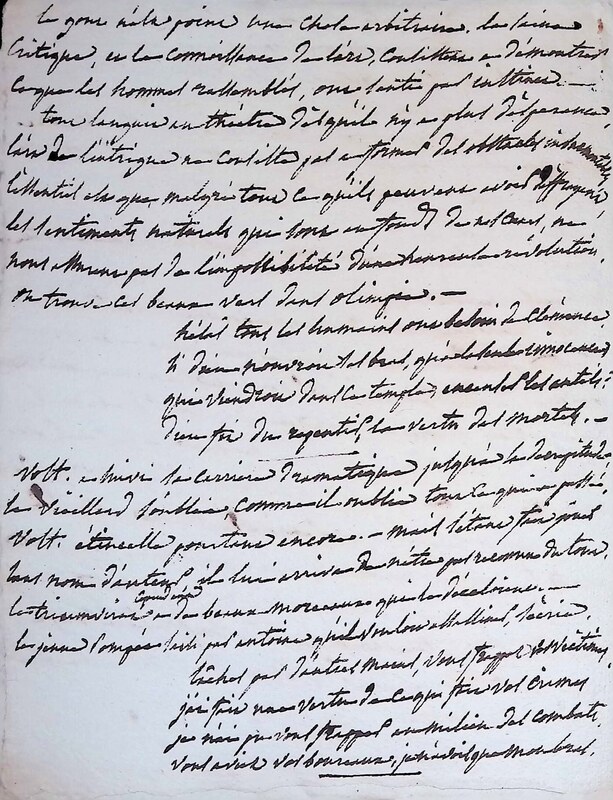 le gout n'est point une chose arbitraire. la saine
critique, et la connoissance de l'art, consistent a démontrer
ce que les hommes rassemblés, ont senti par instinct. —
tout languit au théâtre dès qu'il n'y a plus d'espérance
l'art de l'intrigue ne consiste pas a former des obstacles insurmontables
l'essentiel est que, malgré tout ce qu'ils peuvent avoir d'effrayant,
les sentiments naturels qui sont au fond de nos cœurs, ne
nous assurent pas de l'impossibilité d'une heureuse révolution.
on trouve ces beaux vers dans olimpie. —
hélas tous les humains ont besoin de clémence
si dieu n'ouvroit ses bras, qu'a la seule innocence
qui viendroit dans ce temple, encenser les autels?
dieu fit du repentir, la vertu des mortels. —
Volt. a suivi la carriere dramatique jusqu'a la décrépitude
le vieillard s'oublie, comme il oublie tout ce qui a passé
Volt. étincelle pourtant encore. — mais s'étant fait jouer
sans nom d'auteur, il lui arriva de n'être pas reconnu du tout.
le triumvirat a de beaux morceaux qui le déceloient. —
le jeune Pompée saisi par antoine qu'il vouloit assassiner, s'écrie.
lâches par d'autres mains, vous frappez vos victimes
j'ai fait une vertu de ce qui fait vos crimes
je n'ai pu vous frapper au milieu des combats
vous aviez vos bourreaux, je n'avois que mon bras.